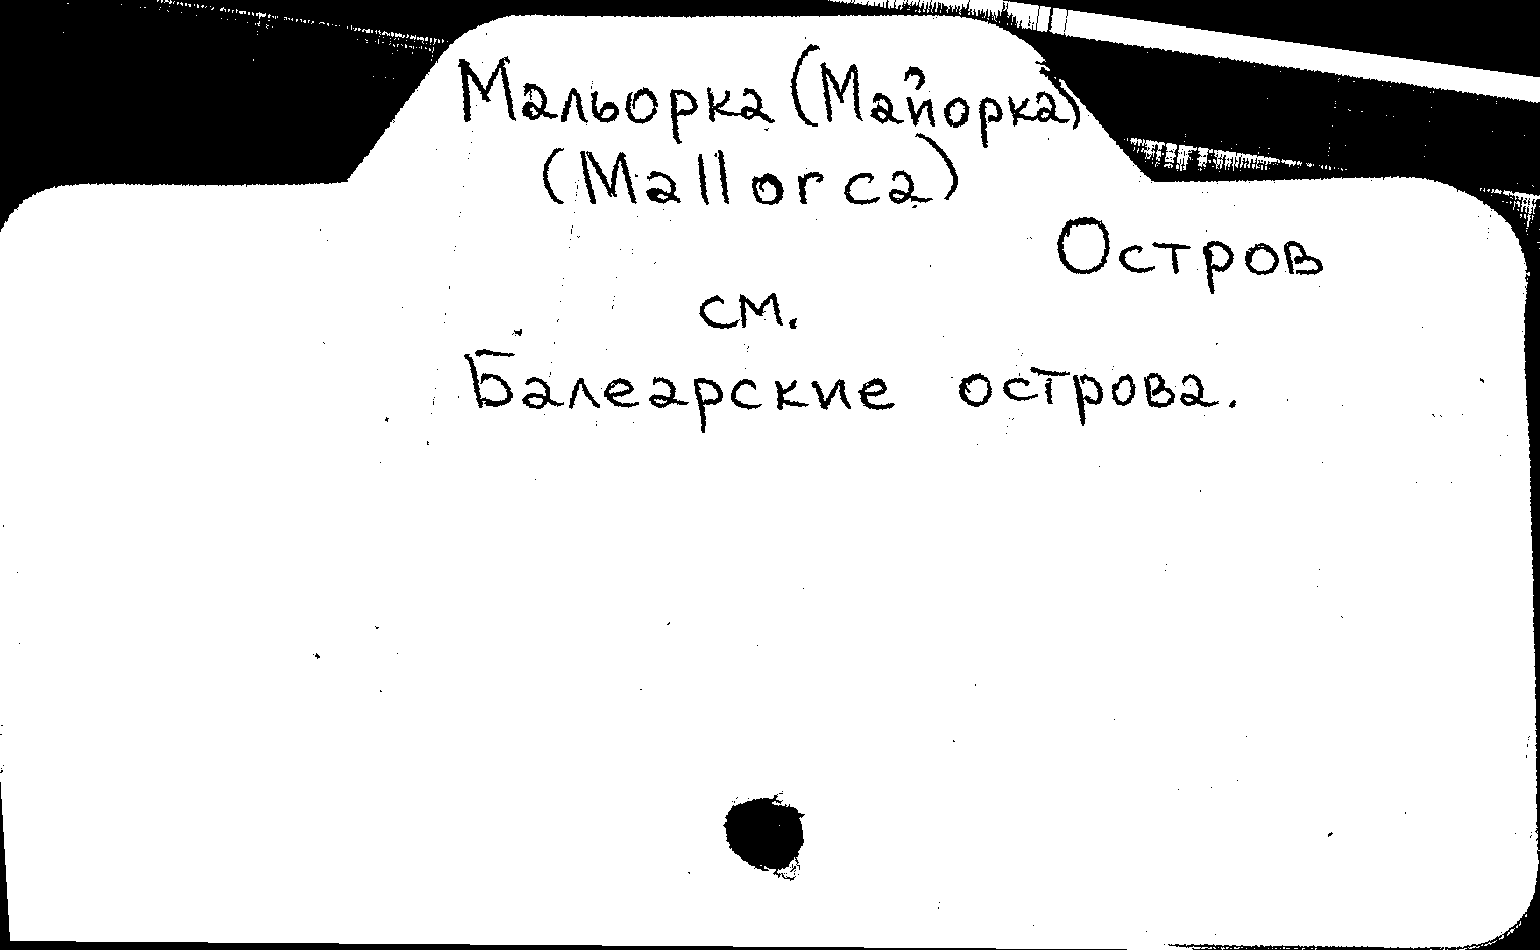 Мальорка (Майорка)
(Mallorca)
Остров
см.
Балеарские острова.